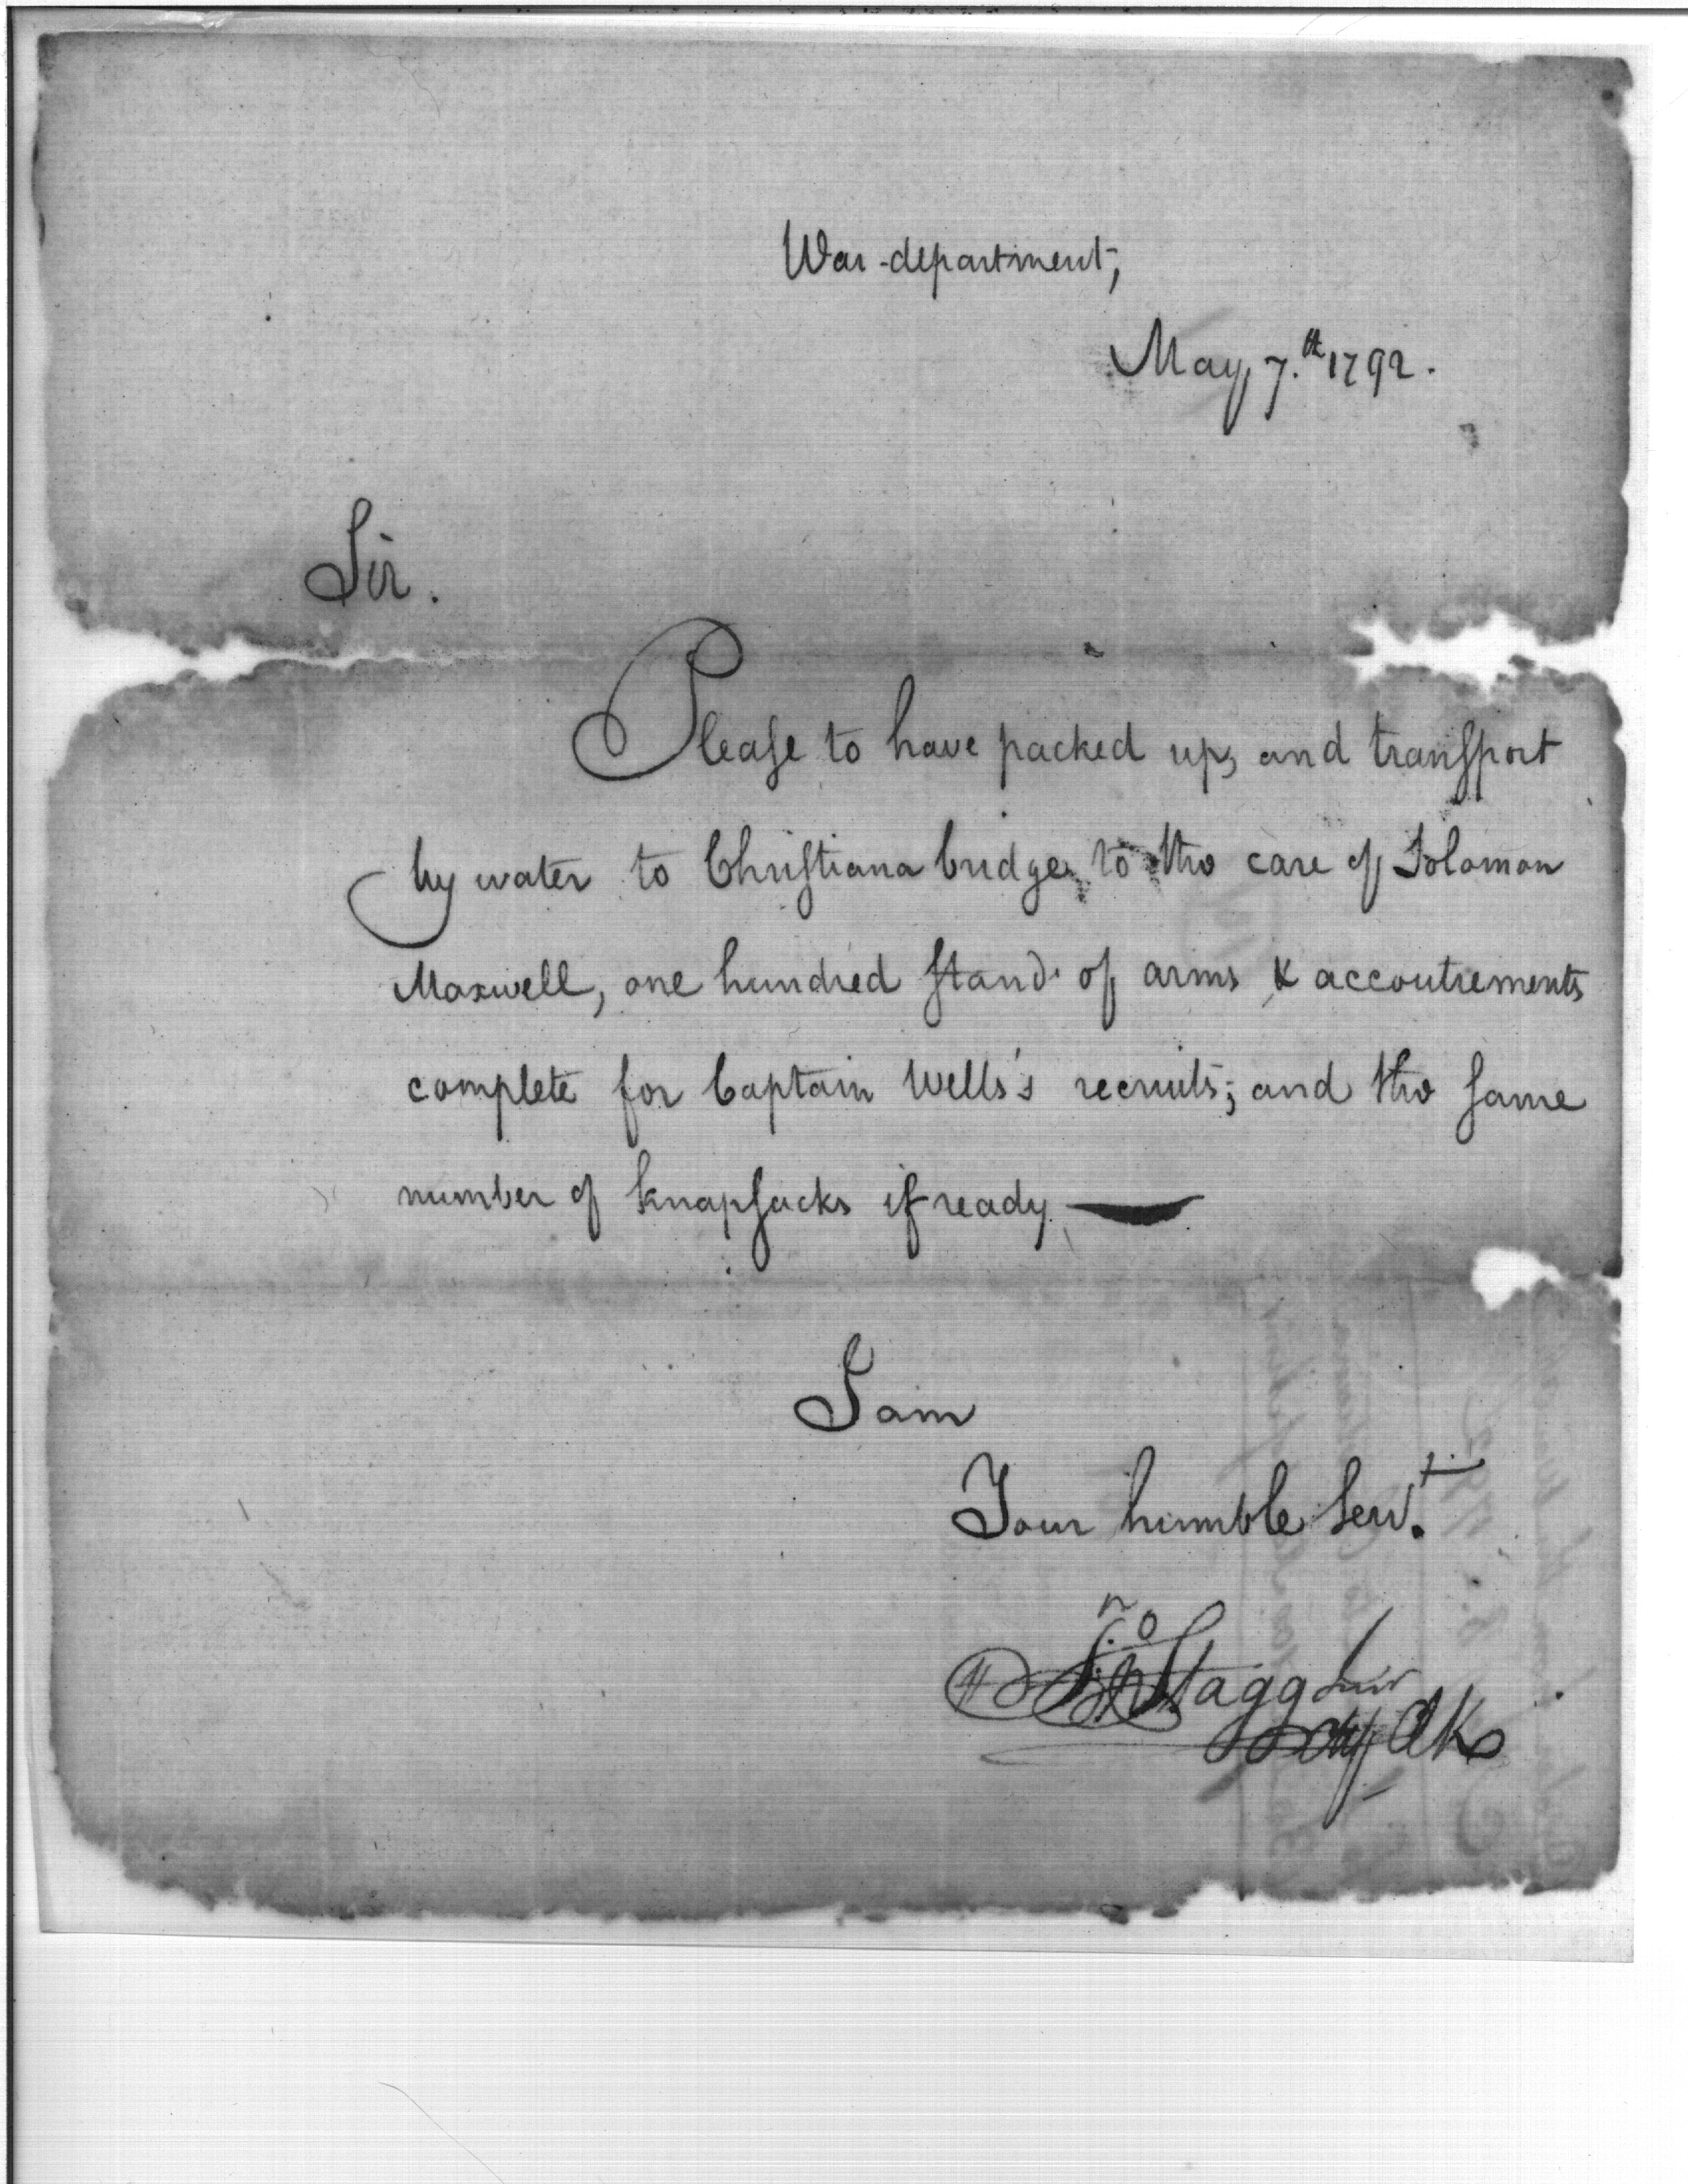 War-department,
May, 7.th 1792.
Sir.
Please to have packed up, and transport
by water to Christiana bridge, to the care of Solomon
Maxwell, one hundred stand of arms & accoutrements
complete for Captain Wells's recruits; and the same
number of knapsacks if ready
I am
Your humble Servt.
Jno Stagg Junr
Chf Clk